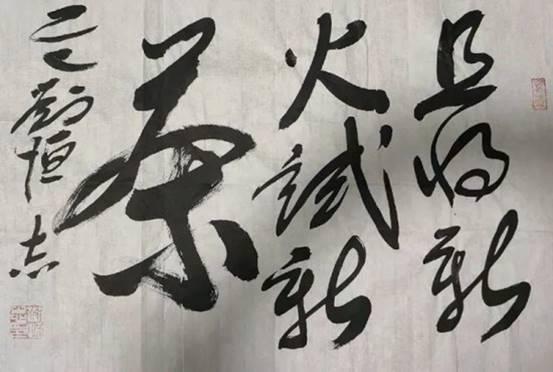 且将新
火試新
茶
刘恒志